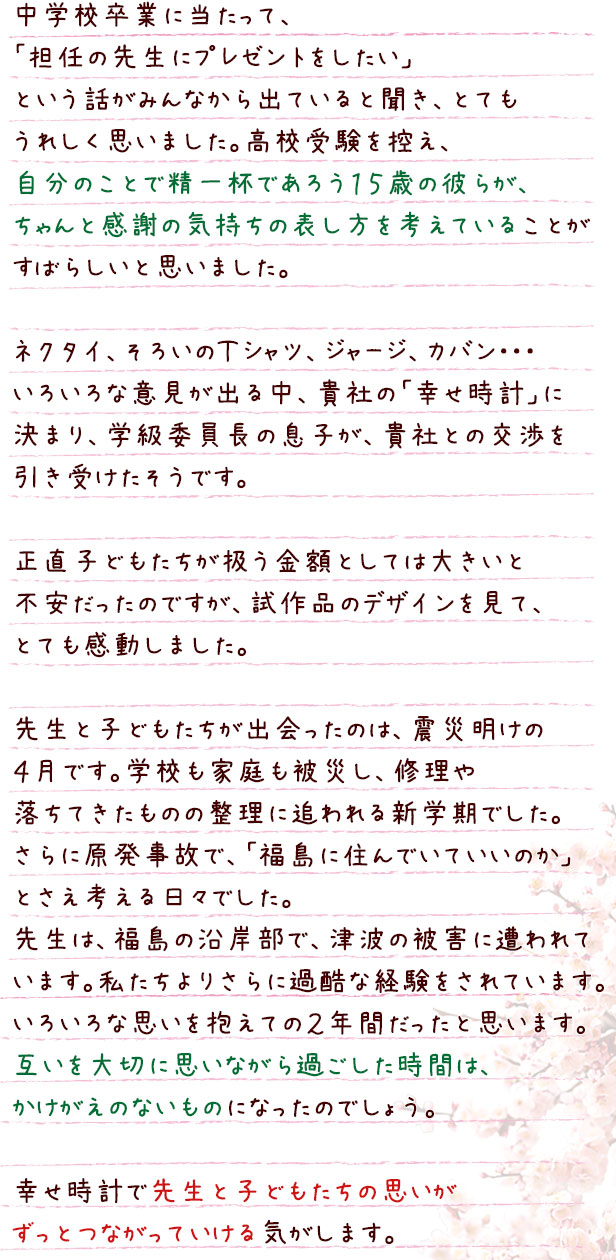 中学校卒業に当たって、
「担任の先生にプレゼントをしたい」
という話がみんなから出ていると聞き、とても
うれしく思いました。高校受験を控え、
自分のことで精一杯であろう15歳の彼らが、
ちゃんと感謝の気持ちの表し方を考えていることが
すばらしいと思いました。
ネクタイ、そろいのTシャツ、ジャージ、カバン・・・
いろいろな意見が出る中、貴社の「幸せ時計」に
決まり、学級委員長の息子が、貴社との交渉を
引き受けたそうです。
正直子どもたちが扱う金額としては大きいと
不安だったのですが、試作品のデザインを見て、
とても感動しました。
先生と子どもたちが出会ったのは、震災明けの
4月です。学校も家庭も被災し、修理や
落ちてきたものの整理に追われる新学期でした。
さらに原発事故で、「福島に住んでいていいのか」
とさえ考える日々でした。
先生は、福島の沿岸部で、津波の被害に遭われて
います。私たちよりさらに過酷な経験をされています。
いろいろな思いを抱えての2年間だったと思います。
互いを大切に思いながら過ごした時間は、
かけがえのないものになったのでしょう。
幸せ時計で先生と子どもたちの思いが
ずっとつながっていける気がします。